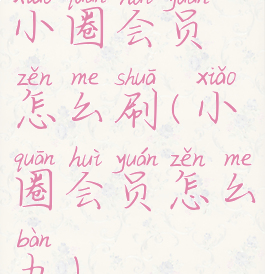 xiǎo quān huì yuán
小圈会员
zěn me shuā xiǎo
怎么刷(小
quān huì yuán zěn me
圈会员怎么
bàn
办)